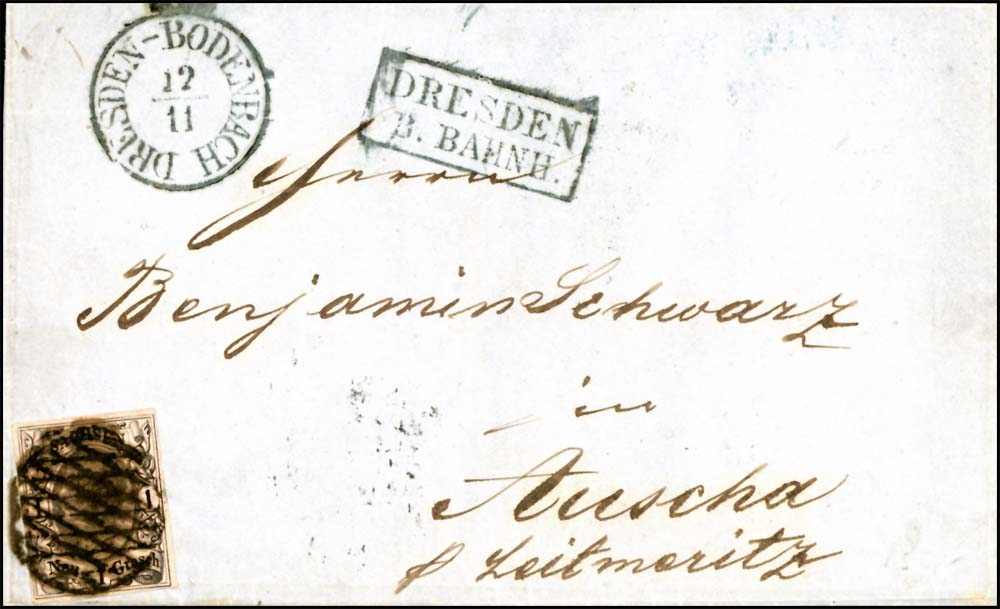 DRESDEN-BODENBACH
12
11
DRESDEN
B. BAHNH.
Herrn
Benjamin Schwarz
in
Auscha
p Leitmeritz
SACHSEN
1
Neu 1 Grosch